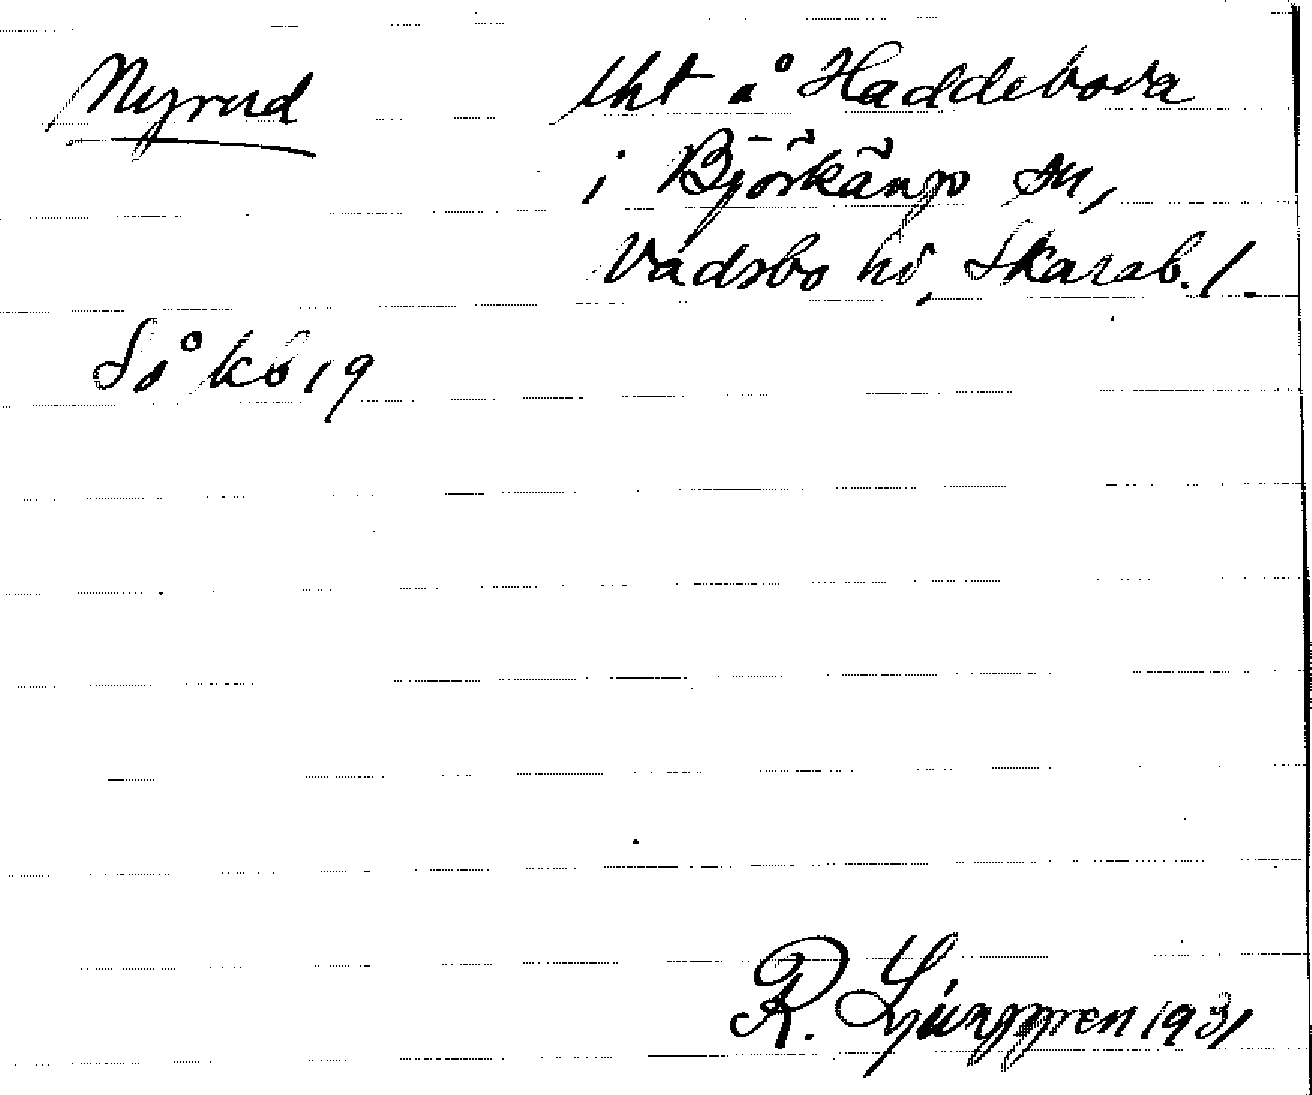 Nyrud
tht å Haddeboda
i Björkängs sn,
Vadsbo hd, Skarab. l.
Så kb 19
R. Ljunggren 1931